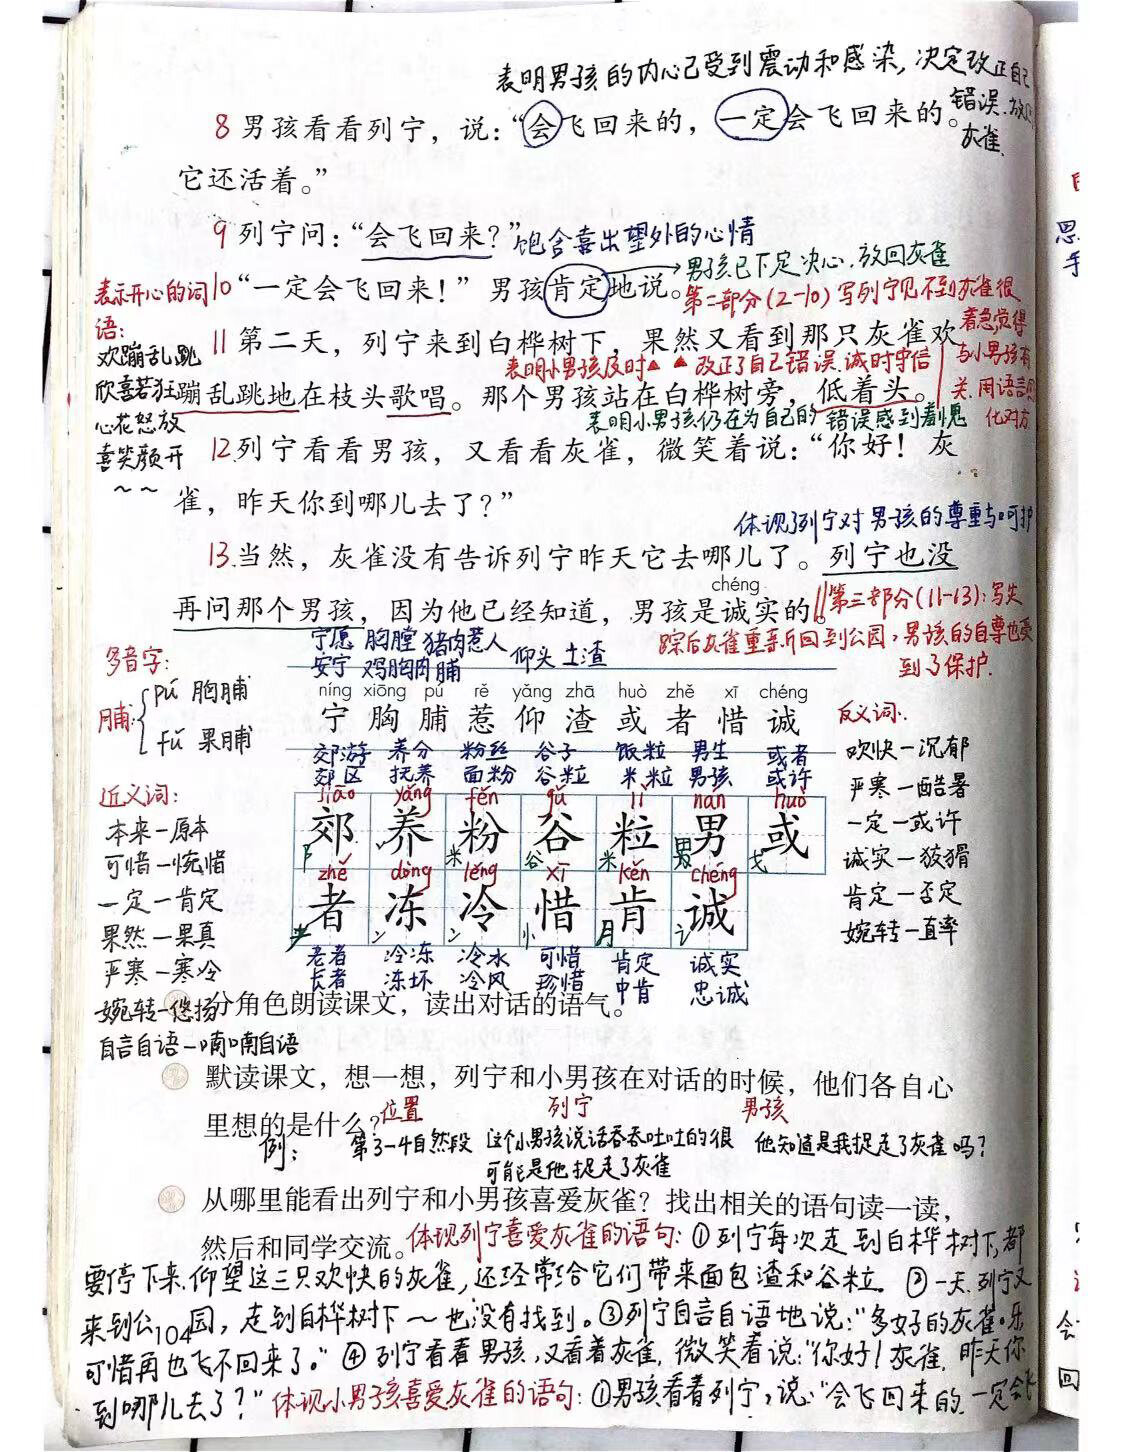 表明男孩的内心已受到震动和感染,决定改正自己
错误.放
灰雀.
8 男孩看看列宁，说：“会飞回来的，一定会飞回来的。
它还活着。”
9 列宁问：“会飞回来？”饱含喜出望外的心情
男孩已下定决心.放回灰雀
表示开心的词
语:
欢蹦乱跳
欣喜若狂
心花怒放
喜笑颜开
~ ~
10 “一定会飞回来！” 男孩肯定地说。
第二部分(2-10)写列宁见不到灰雀很
着急,觉得
与小男孩有
关.用语言
化对方
11 第二天，列宁来到白桦树下，果然又看到那只灰雀欢
表明小男孩及时▲ ▲改正了自己错误.诚时守信
蹦乱跳地在枝头歌唱。那个男孩站在白桦树旁，低着头。
表明小男孩仍在为自己的错误感到羞愧
12.列宁看看男孩，又看看灰雀，微笑着说：“你好！灰
雀，昨天你到哪儿去了？”
体现了列宁对男孩的尊重与呵护
13.当然，灰雀没有告诉列宁昨天它去哪儿了。列宁也没
chéng
再问那个男孩，因为他已经知道，男孩是诚实的。
第三部分(11-13):写失
踪后灰雀重新回到公园,男孩的自尊也受
到了保护.
多音字:
脯{pú 胸脯
fǔ 果脯
宁愿 胸膛 猪肉惹人
安宁 鸡胸肉脯 仰头 土渣
níng xiōng pú rě yǎng zhā huò zhě xī chéng
宁 胸 脯 惹 仰 渣 或 者 惜 诚
郊游 养分 粉丝 谷子 饭粒 男生 或者
郊区 抚养 面粉 谷粒 米粒 男孩 或许
jiāo yǎng fěn gǔ lì nán huò
郊 养 粉 谷 粒 男 或
zhě dòng lěng xī kěn chéng
者 冻 冷 惜 肯 诚
老者 冷冻 冷水 可惜 肯定 诚实
长者 冻坏 冷风 珍惜 中肯 忠诚
近义词:
本来—原本
可惜—惋惜
一定—肯定
果然—果真
严寒—寒冷
婉转—悠扬
自言自语—喃喃自语
反义词:
欢快—沉郁
严寒—酷暑
一定—或许
诚实—狡猾
肯定—否定
婉转—直率
分角色朗读课文，读出对话的语气。
默读课文，想一想，列宁和小男孩在对话的时候，他们各自心
里想的是什么？
位置 列宁 男孩
例: 第3-4自然段 这个小男孩说话吞吞吐吐的很 他知道是我捉走了灰雀吗?
可能是他捉走了灰雀
从哪里能看出列宁和小男孩喜爱灰雀？找出相关的语句读一读，
然后和同学交流。体现列宁喜爱灰雀的语句:①列宁每次走到白桦树下,都
要停下来.仰望这三只欢快的灰雀,还经常给它们带来面包渣和谷粒. ②一天.列宁又
来到公园，走到白桦树下~也没有找到。③列宁自言自语地说:“多好的灰雀.
104
可惜再也飞不回来了。”④列宁看看男孩,又看着灰雀,微笑着说:“你好!灰雀,昨天你
到哪儿去了?”体现小男孩喜爱灰雀的语句:①男孩看看列宁,说:“会飞回来的.一定会
思
手
会
回